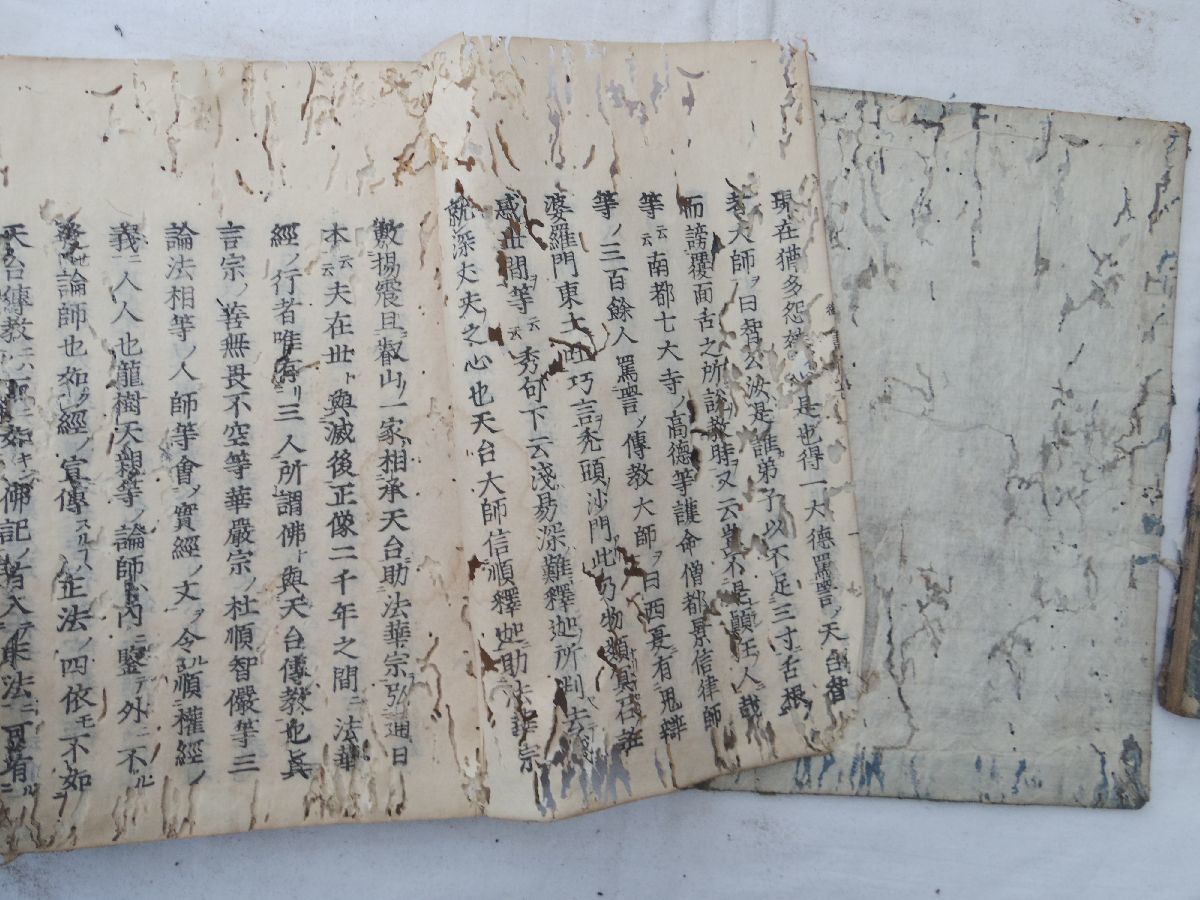 現在猶多怨嫉ノ是也得一大德罵詈ノ天台智
者大師ヲ曰智公汝是誰弟子以不足三寸舌根
而謗覆面舌之所説教時又云豈不是顛狂ノ人哉
等云南都七大寺ノ高德等護命僧都景信律師
等ノ三百餘人罵詈ノ傳教大師ヲ曰西夏有鬼辯
婆羅門東土吐巧言禿頭沙門此乃物類冥召誑
惑世間等云秀句下云淺易深難釋迦所判去
就深丈夫之心也天台大師信順釋迦助法華宗
敷揚震旦叡山ノ一家相承天台助法華宗弘通日
本云夫在世ト與滅後正像二千年之間ニ法華
經ノ行者唯有リ三人所謂佛ト與天台傳教也真
言宗ノ善無畏不空等華嚴宗ノ杜順智儼等三
論法相等ノ人師等會ノ實經ノ文ヲ令ルル順權經ノ
義ニ人人也龍樹天親等ノ論師ハ内ニ鑒テ外ニ不ル
論師也如ク經ノ宣傳スルコハ正法ノ四依モ不如
天台傳教ニハ如キンハ佛記ノ者入テ末法ニ可有ル